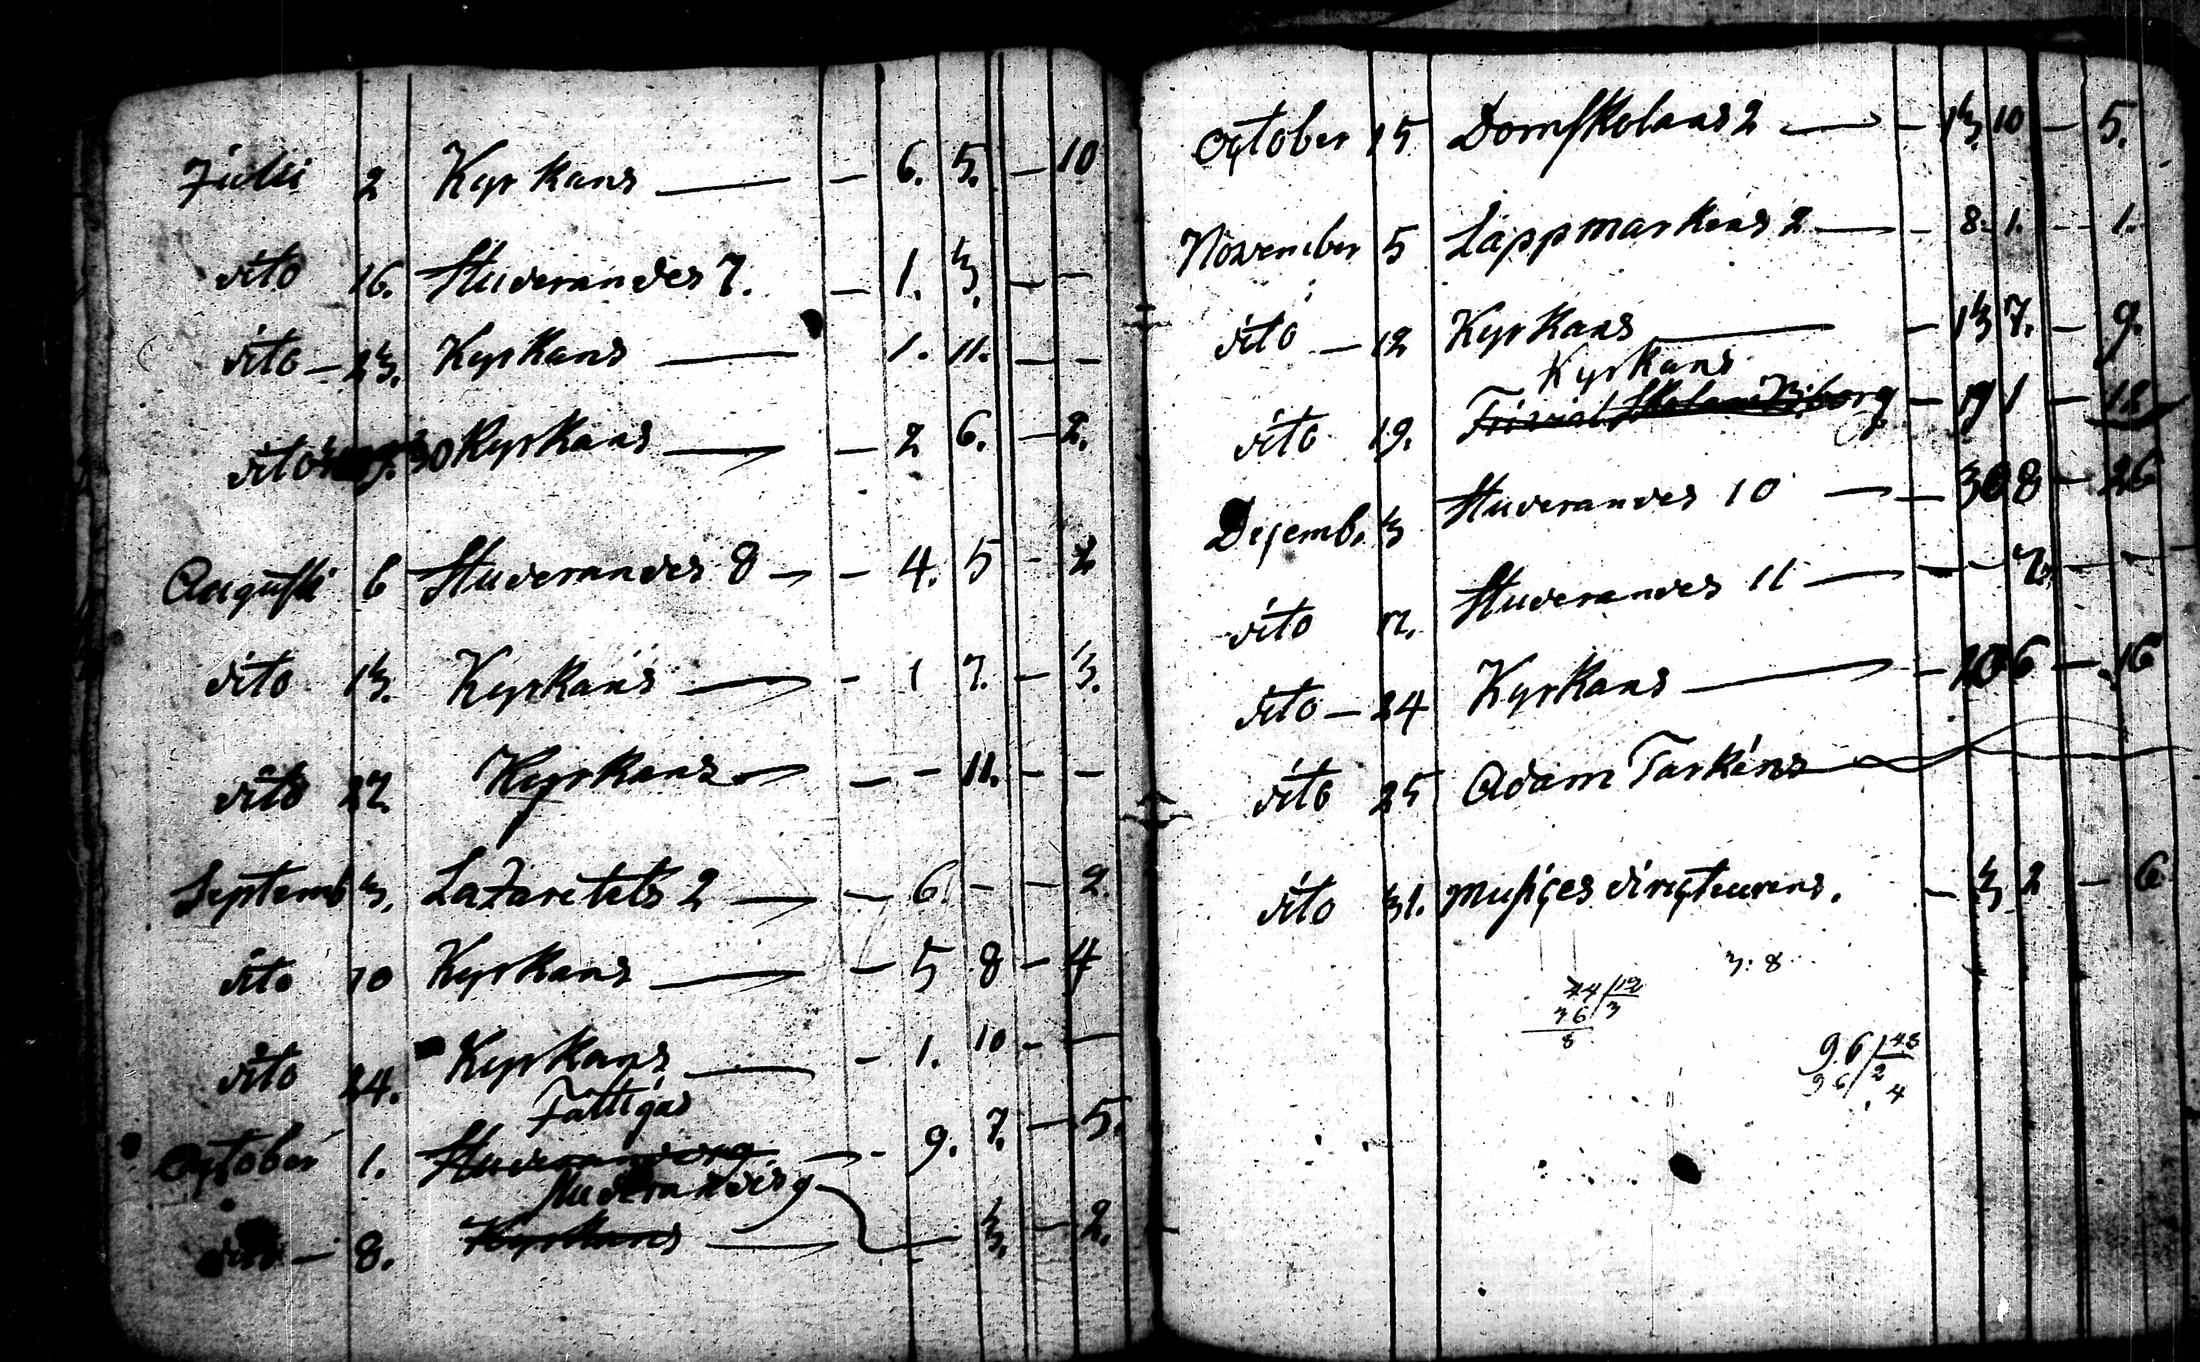 Julii 2 Kyrkans — — 6. 5. — 10
dito 16. Studerandes 7. — 1. 3. — —
dito — 23. Kyrkans — 1. 11. — —
dito 30 Kyrkans — — 2 6. — 2.
Augusti 6 Studerandes 8 — — 4. 5 — 2
dito 13. Kyrkans — — 1 7. — 3.
dito 27. Kyrkans — — — 11. — —
Septemb 3. Lazaretets 2 — — 6. — — 2.
dito 10 Kyrkans — — 5 8 — 4
dito 24. Kyrkans — — 1. 10 — —
Fattigas
October 1. Studerandes — — 9. 7. — 5.
Studerandes
dito — 8. Kyrkans — — 3. — 2.
October 15 Domskolans 2 — — 13 10 — 5.
November 5 Lappmarkens 2 — — 8. 1. — 1.
dito — 12 Kyrkans — — 13 7. — 9.
Kyrkans
dito 19. Trivial Skolans Wiborg — 19 1 — 12
Decemb. 3 Studerandes 10 — — 30 8 — 26
dito 17. Studerandes 11 — — — 7. — —
dito — 24 Kyrkans — — 20 6 — 16
dito 25 Adam Tarkens
dito 31. Musices directeurens. — 3 2 — 6
3: 8
44/12
36/3
8
96/48
96/2
4